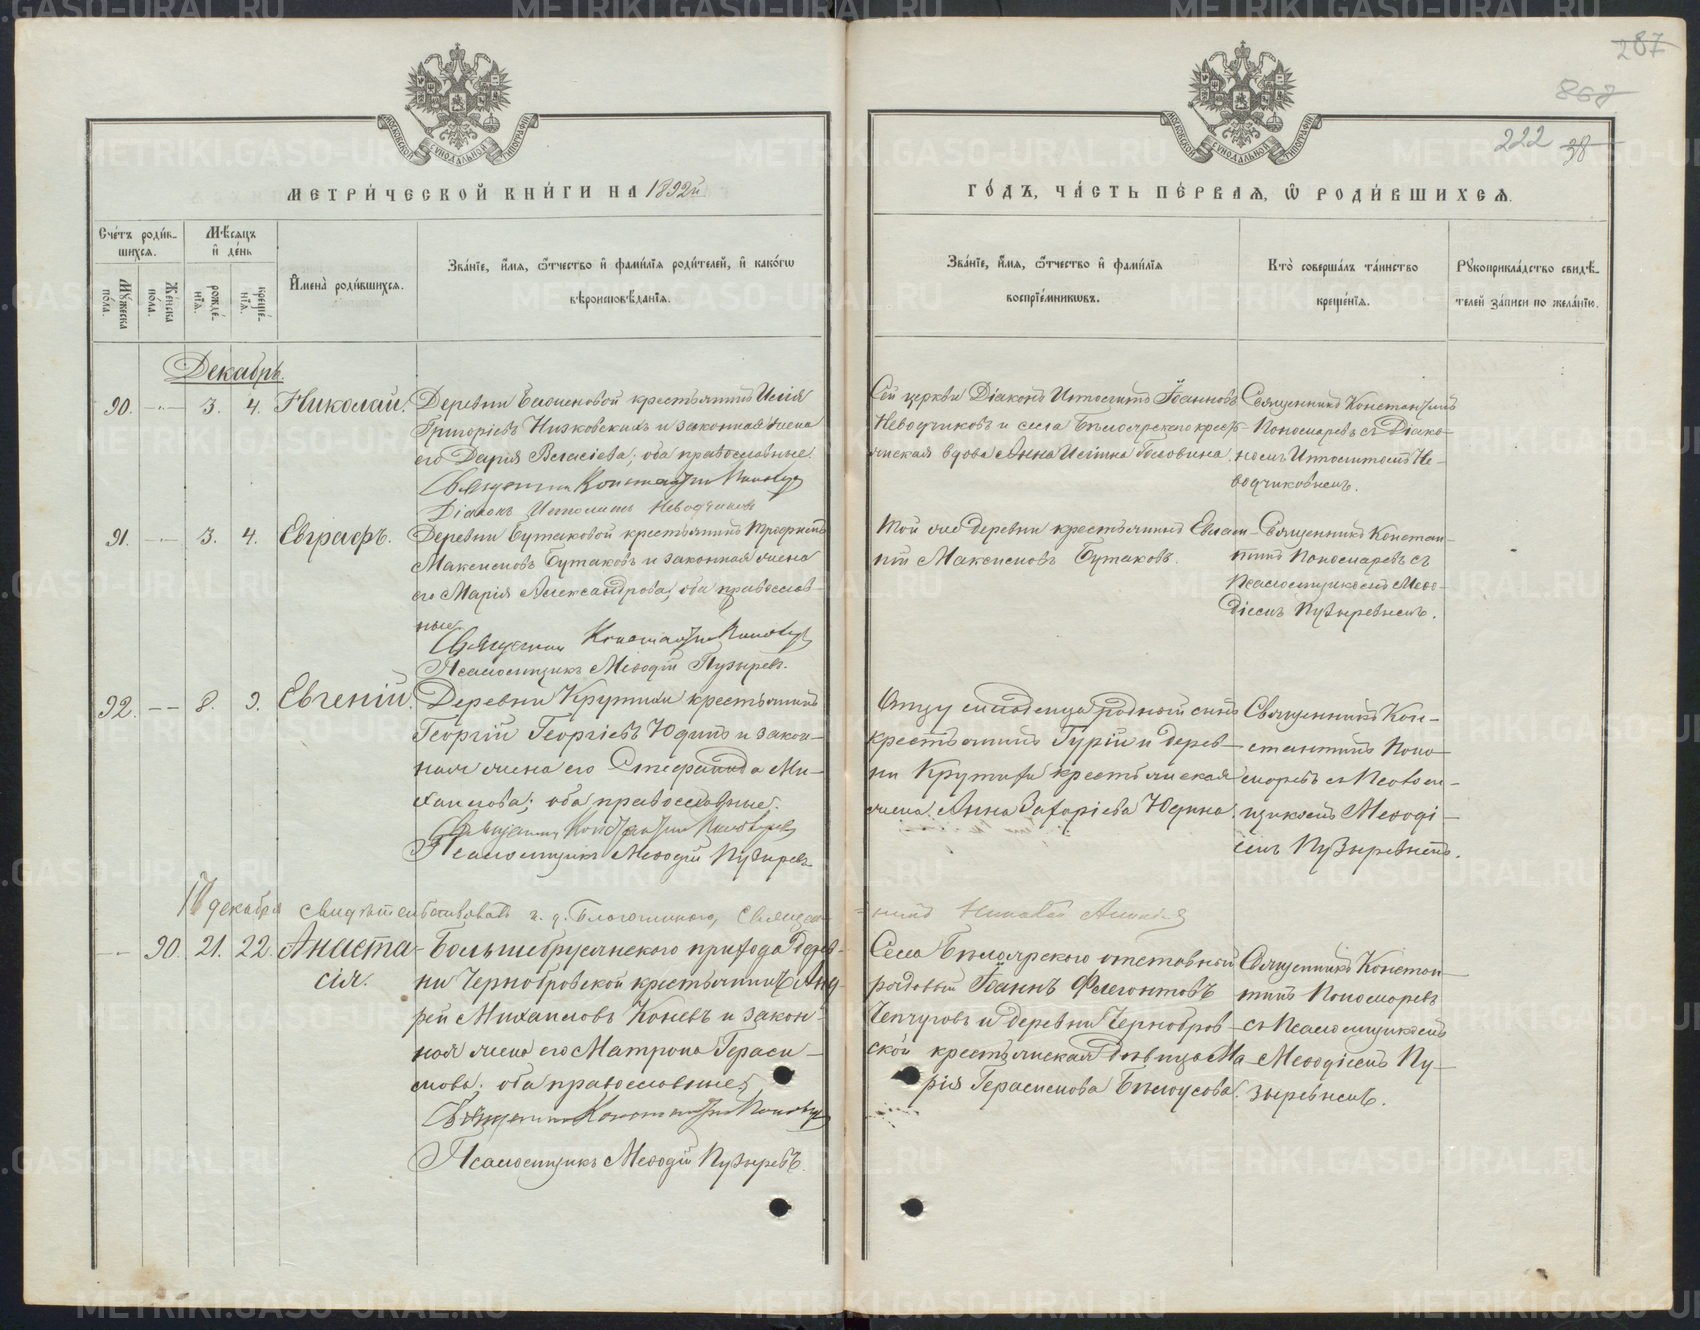 287
868
222 38
МОСКОВСКОЙ СУНОДАЛЬНОЙ ТИПОГРАФІИ
МОСКОВСКОЙ СУНОДАЛЬНОЙ ТИПОГРАФІИ
МЕТРИ́ЧЕСКОЙ КНИ́ГИ НА 1892й
ГО́ДЪ, ЧА́СТЬ ПЕ́РВАЯ, Ѡ РОДИ́ВШИХСЯ.
Сче́тъ роди́в-
шихся.
Мѣ́сяцъ
и де́нь
Му́жеска по́ла.
Же́нска по́ла.
рожде́нїя.
креще́нїя.
Имена̀ роди́вшихся.
Зва́нїе, и́мя, ѻ́тчество и фами́лїя роди́телей, и како́гѡ
вѣроисповѣ́данїя.
Зва́нїе, и́мя, ѻ́тчество и фами́лїя
воспрїе́мникѡвъ.
Кто̀ соверша́лъ та́инство
креще́нїя.
Рꙋкоприкла́дство свидѣ́-
телей за́писи по жела́нїю.
Декабрь.
90. -"- 3. 4. Николай.
Деревни крестьянинъ Исаія
Григоріевъ Низковскихъ и законная жена
его Дарія Власіева; оба православные.
Священникъ Константинъ Пономаревъ
Діаконъ Ипполитъ Неводчиковъ
Сей церкви Діаконъ Ипполитъ Іоанновъ
Неводчиковъ и села Бѣлоярскаго кресть-
янская вдова Анна Исаіина Головина.
Священникъ Константинъ
Пономаревъ съ Діако-
номъ Ипполитомъ Не-
водчиковымъ.
91. -"- 3. 4. Евграфъ.
Деревни Бутаковой крестьянинъ Трофимъ
Максимовъ Бутаковъ и законная жена
его Марія Александрова, оба православ-
ные.
Священникъ Константинъ Пономаревъ
Псаломщикъ Меѳодій Пузыревъ.
Той же деревни крестьянинъ Евламп-
пій Максимовъ Бутаковъ.
Священникъ Констан-
тинъ Пономаревъ съ
Псаломщикомъ Меѳо-
діемъ Пузыревымъ.
92. -- 8. 9. Евгеній.
Деревни Крутихи крестьянинъ
Георгій Георгіевъ Юдинъ и закон-
ная жена его Стефанида Ми-
хаилова; оба православные.
Священникъ Константинъ Пономаревъ
Псаломщикъ Меѳодій Пузыревъ
Отцу младенца родной сынъ
крестьянинъ Гурій и дерев-
ни Крутихи крестьянская
жена Анна Захаріева Юдина.
Священникъ Кон-
стантинъ Поно-
маревъ съ Псалом-
щикомъ Меѳоді-
емъ Пузыревымъ.
17 декабря свидѣтельствовалъ и. д. Благочиннаго, Священ-
никъ Николай
-- 90. 21. 22. Анаста-
сія.
Большебрусянскаго прихода Дерев-
ни Чернобровской крестьянинъ Анд-
рей Михаиловъ Коневъ и закон-
ная жена его Матрона Гераси-
мова; оба православные.
Священникъ Константинъ Пономаревъ
Псаломщикъ Меѳодій Пузыревъ.
Села Бѣлоярскаго отставной
рядовый Іоаннъ Флегонтовъ
Чепчуговъ и деревни Чернобров-
ской крестьянская дѣвица Ма-
рія Герасимова Бѣлоусова.
Священникъ Констан-
тинъ Пономаревъ
съ Псаломщикомъ
Меѳодіемъ Пу-
зыревымъ.